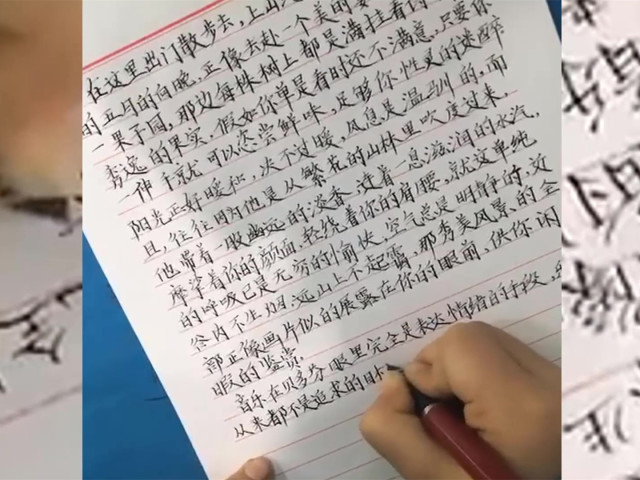 在这里出门散步去,上山
的五月的向晚,正像去赴一个美的宴
一果子园,那边每株树上都是满挂着诗
秀逸的果实,假如你单是看时还不满意,只要你
一伸手就可以恣尝鲜味,足够你性灵的迷醉
阳光正好暖和,决不过暖,风息是温驯的,而
且,往往因为他是从繁花的山林里吹度过来,
他带着一股幽远的淡香,连着一息滋润的水汽,
摩挲着你的颜面,轻绕着你的肩腰,就这单纯
的呼吸已是无穷的愉快,空气总是明静的,近
谷内不生烟,远山上不起霭,那秀美风景的全
部正像画片似的展露在你的眼前,供你闲
暇的鉴赏.
音乐在贝多芬眼里完全是表达情绪的手段,
从来都不是追求的目